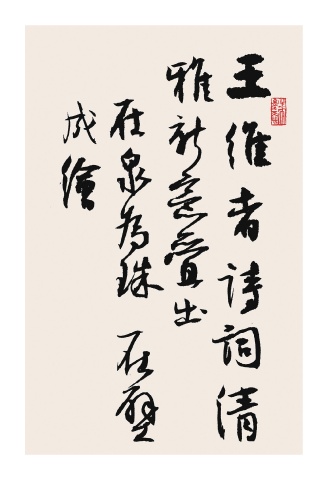 王維者詩詞清
雅新意叠出
在泉為珠 在壁
成繪